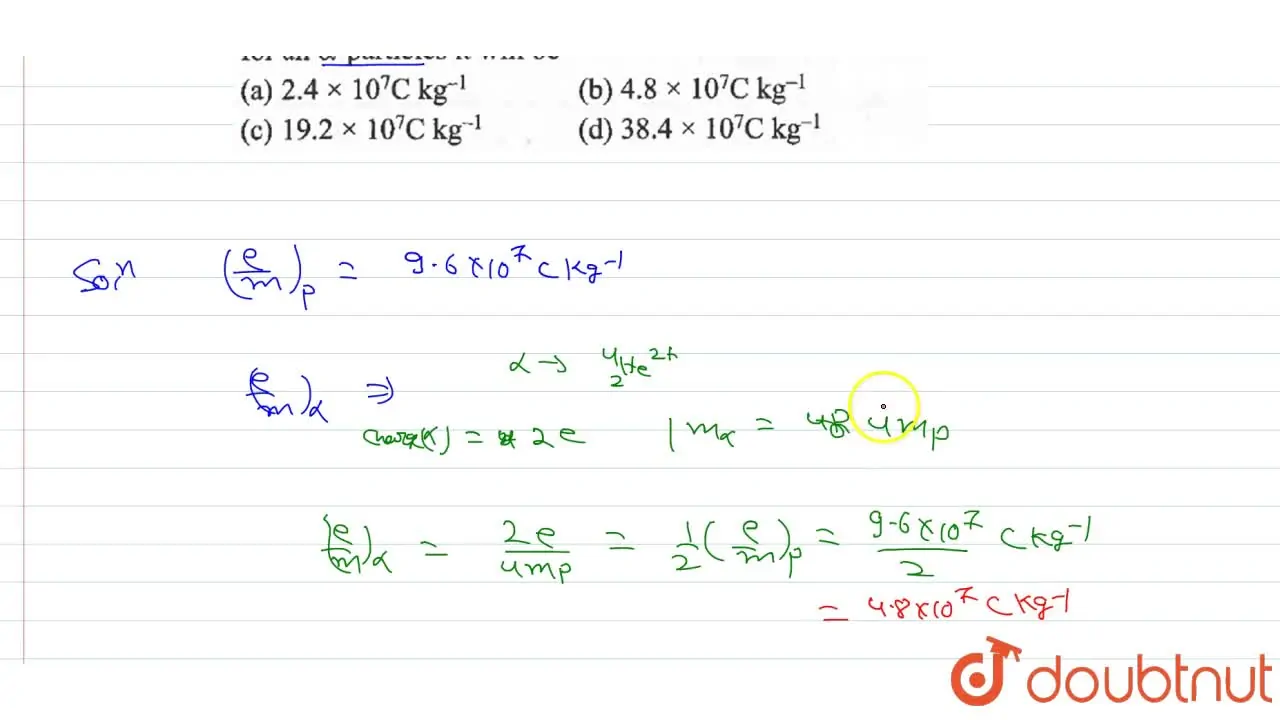 for an α-particles it will be
(a) 2.4 × 10⁷C kg⁻¹ (b) 4.8 × 10⁷C kg⁻¹
(c) 19.2 × 10⁷C kg⁻¹ (d) 38.4 × 10⁷C kg⁻¹
Solⁿ (e/m)p = 9.6×10⁷ C kg⁻¹
α → ⁴₂He²⁺
(e/m)α ⇒
charge(α) = 2e | mα = 4mp
(e/m)α = 2e/4mp = 1/2 (e/m)p = 9.6×10⁷/2 C kg⁻¹
= 4.8×10⁷ C kg⁻¹
doubtnut